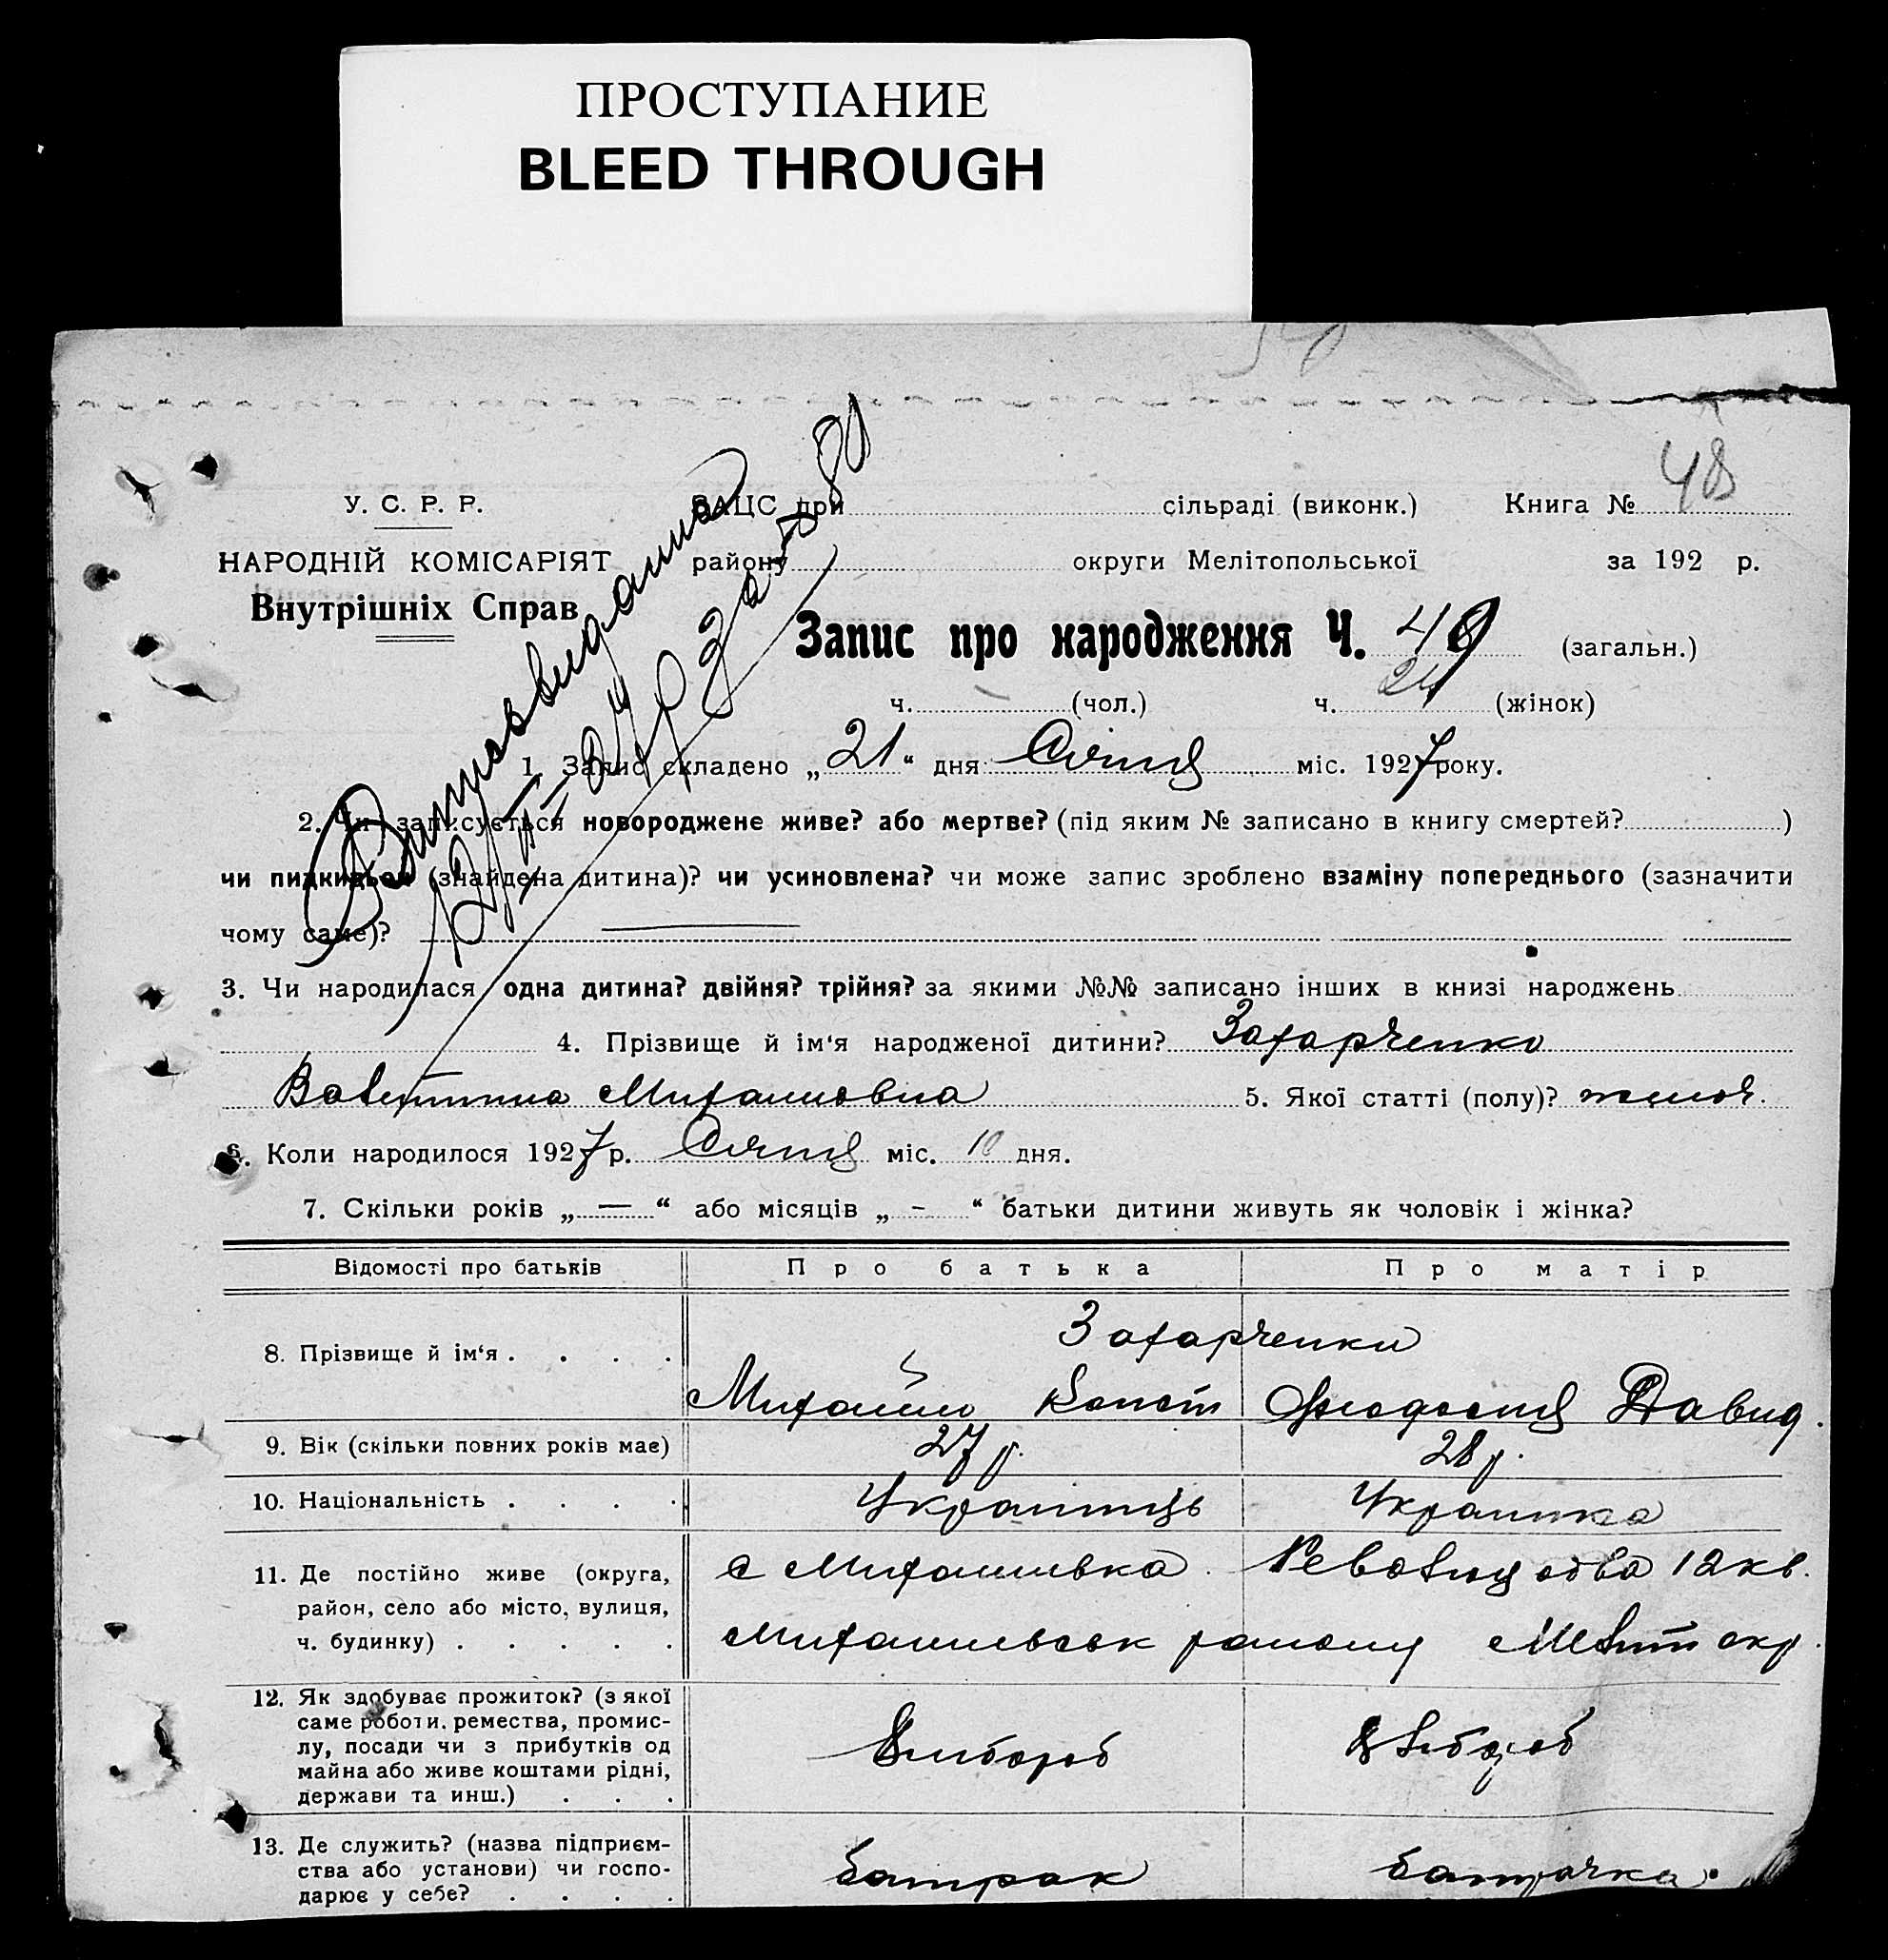 ПРОСТУПАНИЕ
BLEED THROUGH
48
У. С. Р. Р.
ЗАЦС при сільраді (виконк.) Книга №
НАРОДНІЙ КОМІСАРІЯТ
району округи Мелітопольської за 192 р.
Внутрішніх Справ
Запис про народження Ч. 49 (загальн.)
ч. (чол.) ч. 24 (жінок)
1. Запис складено „21“ дня Січня міс. 1927 року.
2. Чи записується новороджене живе? або мертве? (під яким № записано в книгу смертей? )
чи пидкидьок (знайдена дитина)? чи усиновлена? чи може запис зроблено взаміну попереднього (зазначити
чому саме)?
3. Чи народилася одна дитина? двійня? трійня? за якими №№ записано інших в книзі народжень
4. Прізвище й ім‘я народженої дитини? Захарченко
Валентина Михайловна 5. Якої статті (полу)? жіноч.
6. Коли народилося 1927 р. Січня міс. 10 дня.
7. Скільки років „—“ або місяців „-“ батьки дитини живуть як чоловік і жінка?
Відомості про батьків Про батька Про матір
Захарченки
8. Прізвище й ім‘я . . . .
Михайло Конст Феодосия Давид.
9. Вік (скільки повних років має) 27 р. 28 р.
10. Національність . . . . Українець Українка
11. Де постійно живе (округа, с Михайлівка. 12 кв.
район, село або місто, вулиця,
ч. будинку) . . . . . Михайлівськ району Меліт окр.
12. Як здобуває прожиток? (з якої
саме роботи, ремества, промис-
лу, посади чи з прибутків од
майна або живе коштами рідні,
держави та инш.) . . .
13. Де служить? (назва підприєм-
ства або установи) чи госпо- батрак батрачка
дарює у себе? . . . .